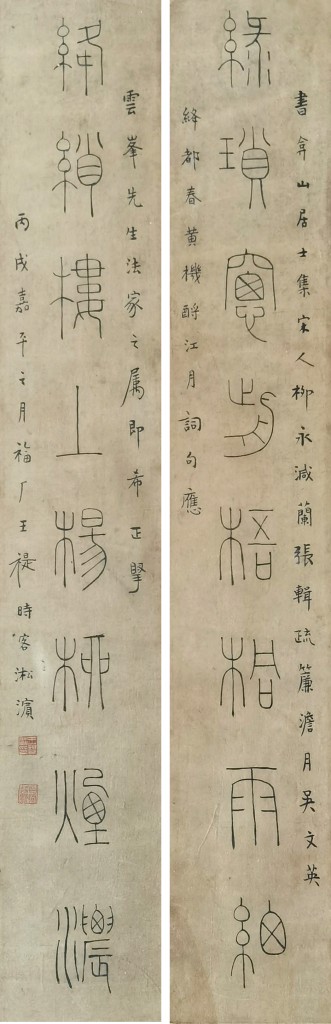 緑瑣窗前梧桐雨細
絳綃樓上楊柳煙濃
書弇山居士集宋人柳永減蘭張輯疏簾澹月吳文英
絳都春黃機酹江月詞句應
雲峯先生法家之属即希正擘
丙戌嘉平之月福厂王禔時客淞濱